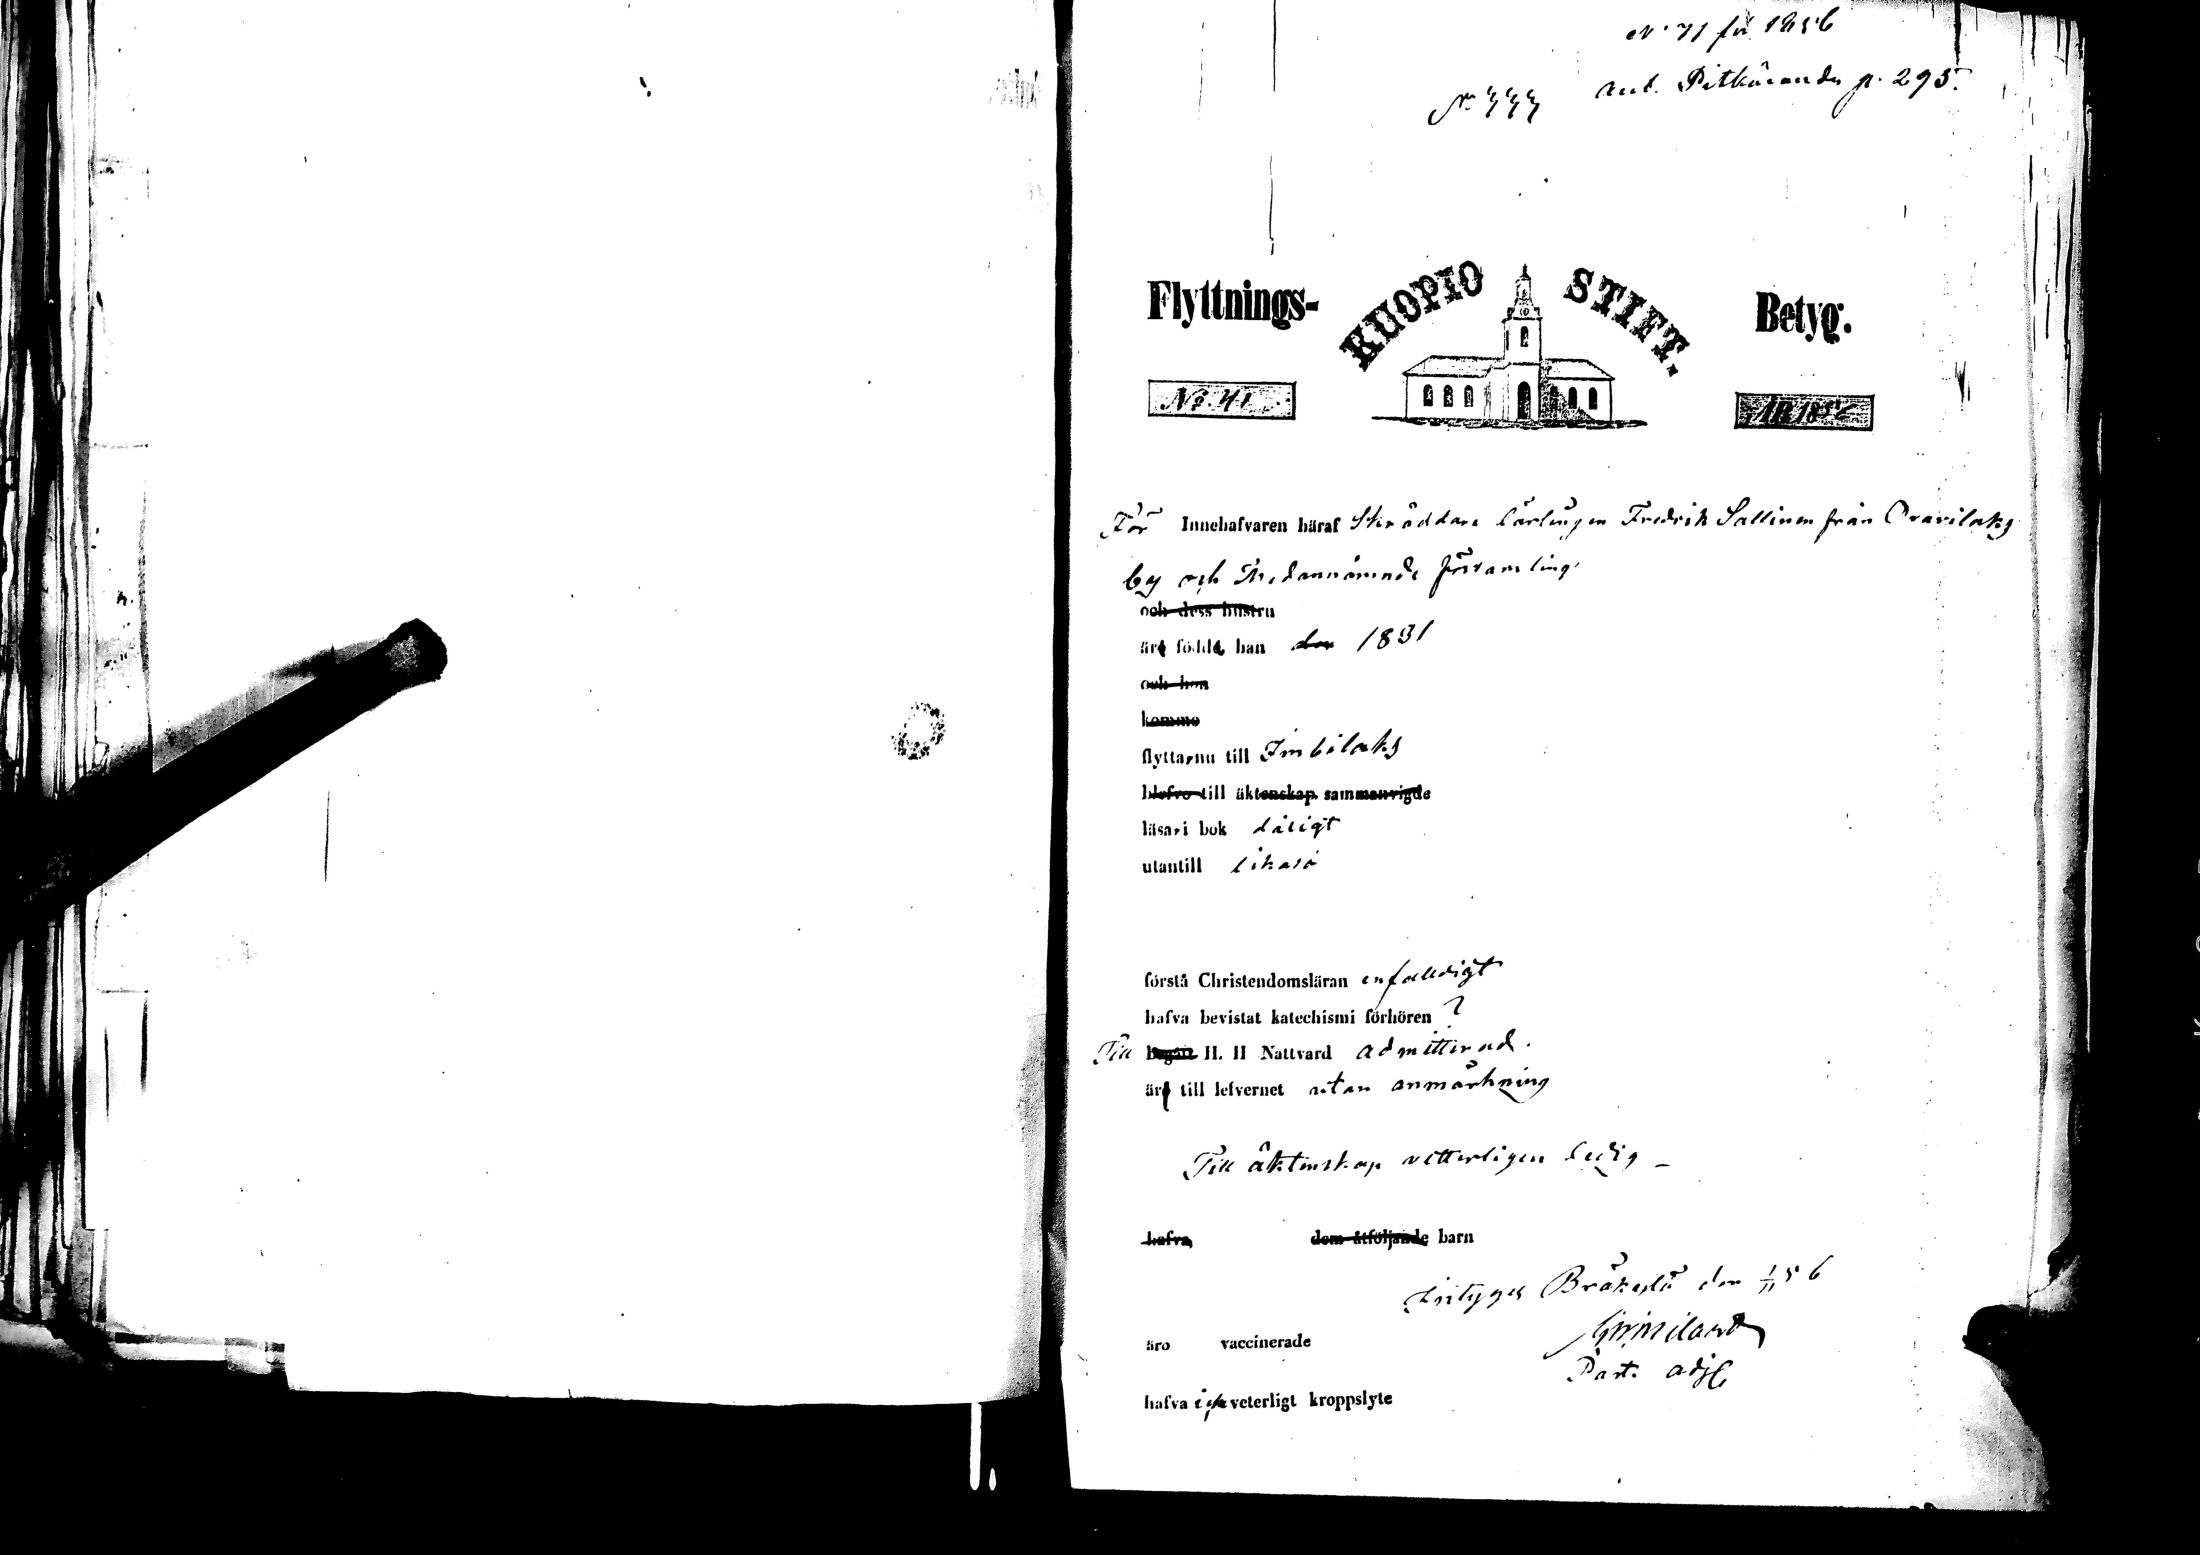 N:o 71 för 1856
N:o 777 ant. Pitkäranda p. 295.
Flyttnings- KUOPIO STIFT. Betyg.
No. 41 ÅR 1856
För Innehafvaren häraf Skräddare lärlingen Fredrik Sallinen från Oravilaks
by och Nedannämnde församling
och dess hustru
äro födde, han den 1831
och hon
komme
flytta nu till Imbilaks
blefvo till äktenskap sammanvigde
läsa i bok dåligt
utantill likaså
förstå Christendomsläran enfaldigt
hafva bevistat katechismi förhören ?
Till begått H. H Nattvard admitterad.
äro till lefvernet utan anmärkning
Till äktenskap vetterligen ledig –
hafva dem åtföljande barn
Intygas Bräkylä den 1/11 56
äro vaccinerade
Past. adj.
hafva icke veterligt kroppslyte